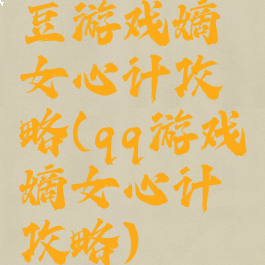 豆游戏嫡
女心计攻
略(qq游戏
嫡女心计
攻略)